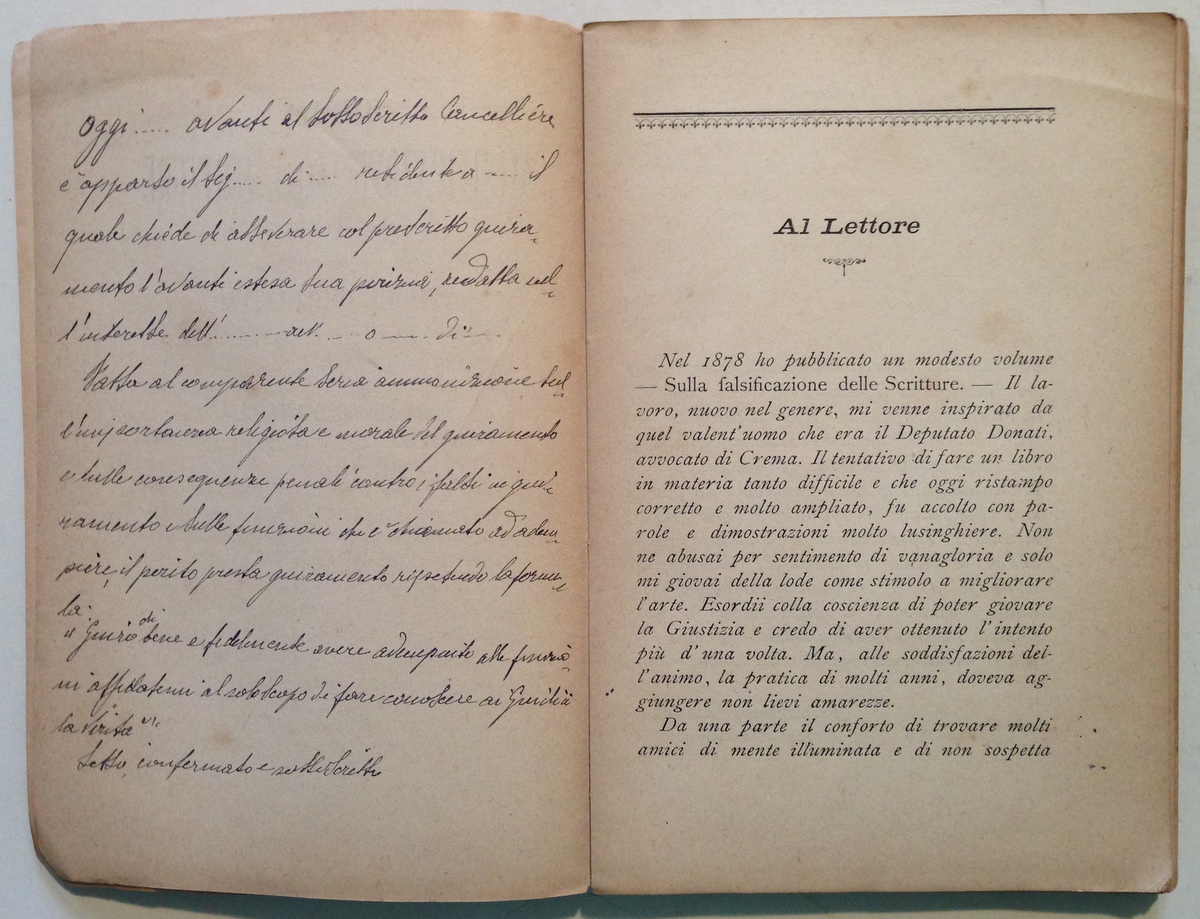 Oggi ..... avanti al sottoscritto Cancelliere
è apparso il sig..... di .... residente a ..... il
quale chiede di asseverare col prescritto giura-
mento l'avanti estesa sua perizia, redatta nel-
l'interesse dell'......... avv. ... o ..... di .....
Fatta al comparente seria ammonizione sul-
l'importanza religiosa e morale del giuramento
e sulle conseguenze penali contro i falsi in giu-
ramento e sulle funzioni che è chiamato ad adem-
piere, il perito presta giuramento ripetendo la formu-
la:
"Giuro di bene e fedelmente avere adempiuto alle funzio-
ni affidatemi al solo scopo di fare conoscere ai Giudici
la verità"
Letto, confermato e sottoscritto
Al Lettore
Nel 1878 ho pubblicato un modesto volume
— Sulla falsificazione delle Scritture. — Il la-
voro, nuovo nel genere, mi venne inspirato da
quel valent'uomo che era il Deputato Donati,
avvocato di Crema. Il tentativo di fare un libro
in materia tanto difficile e che oggi ristampo
corretto e molto ampliato, fu accolto con pa-
role e dimostrazioni molto lusinghiere. Non
ne abusai per sentimento di vanagloria e solo
mi giovai della lode come stimolo a migliorare
l'arte. Esordii colla coscienza di poter giovare
la Giustizia e credo di aver ottenuto l'intento
più d'una volta. Ma, alle soddisfazioni del-
l'animo, la pratica di molti anni, doveva ag-
giungere non lievi amarezze.
Da una parte il conforto di trovare molti
amici di mente illuminata e di non sospetta